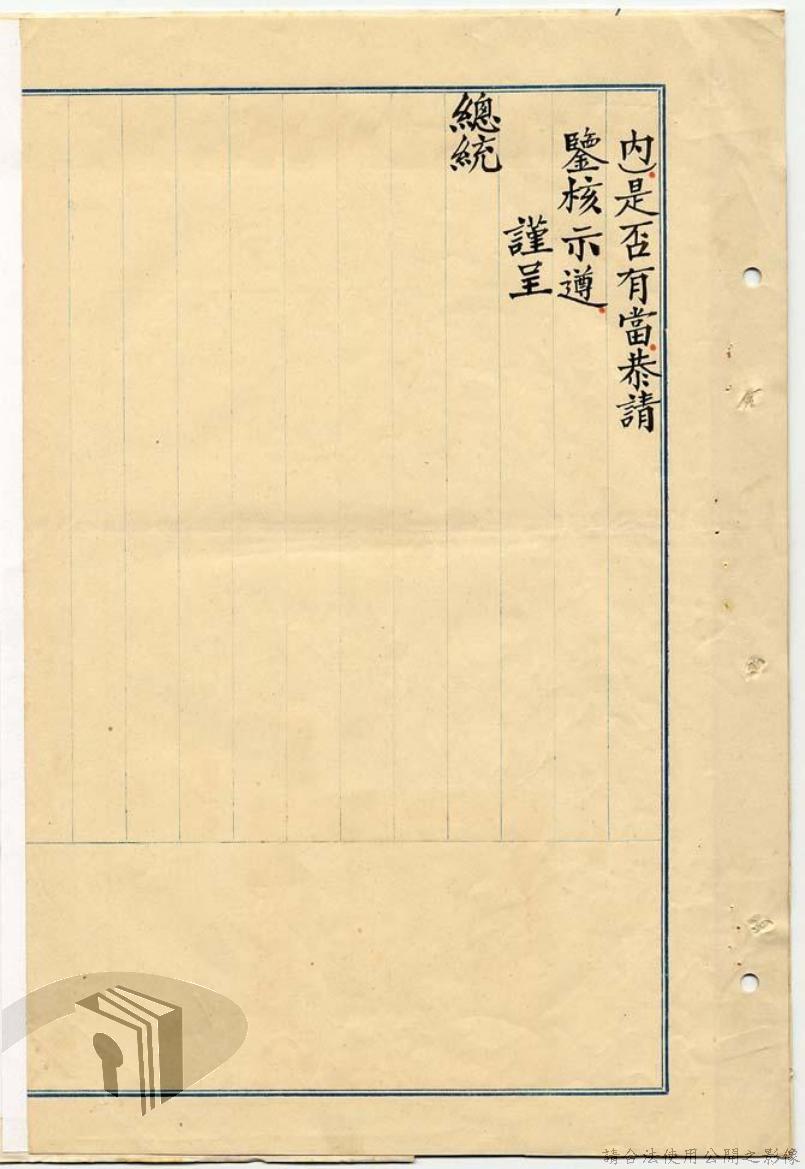 內)是否有當恭請
鑒核示遵
謹呈
總統
請合法使用公開之影像